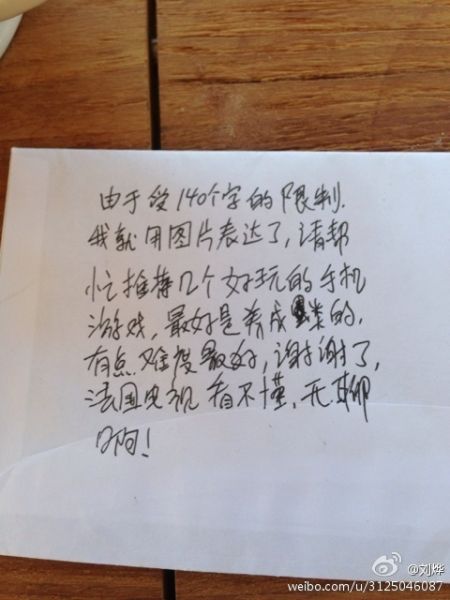 由于受140个字的限制.
我就用图片表达了,请帮
忙推荐几个好玩的手机
游戏,最好是养成类的.
有点难度最好,谢谢了,
法国电视看不懂,无聊
啊!
@刘烨
weibo.com/u/3125046087